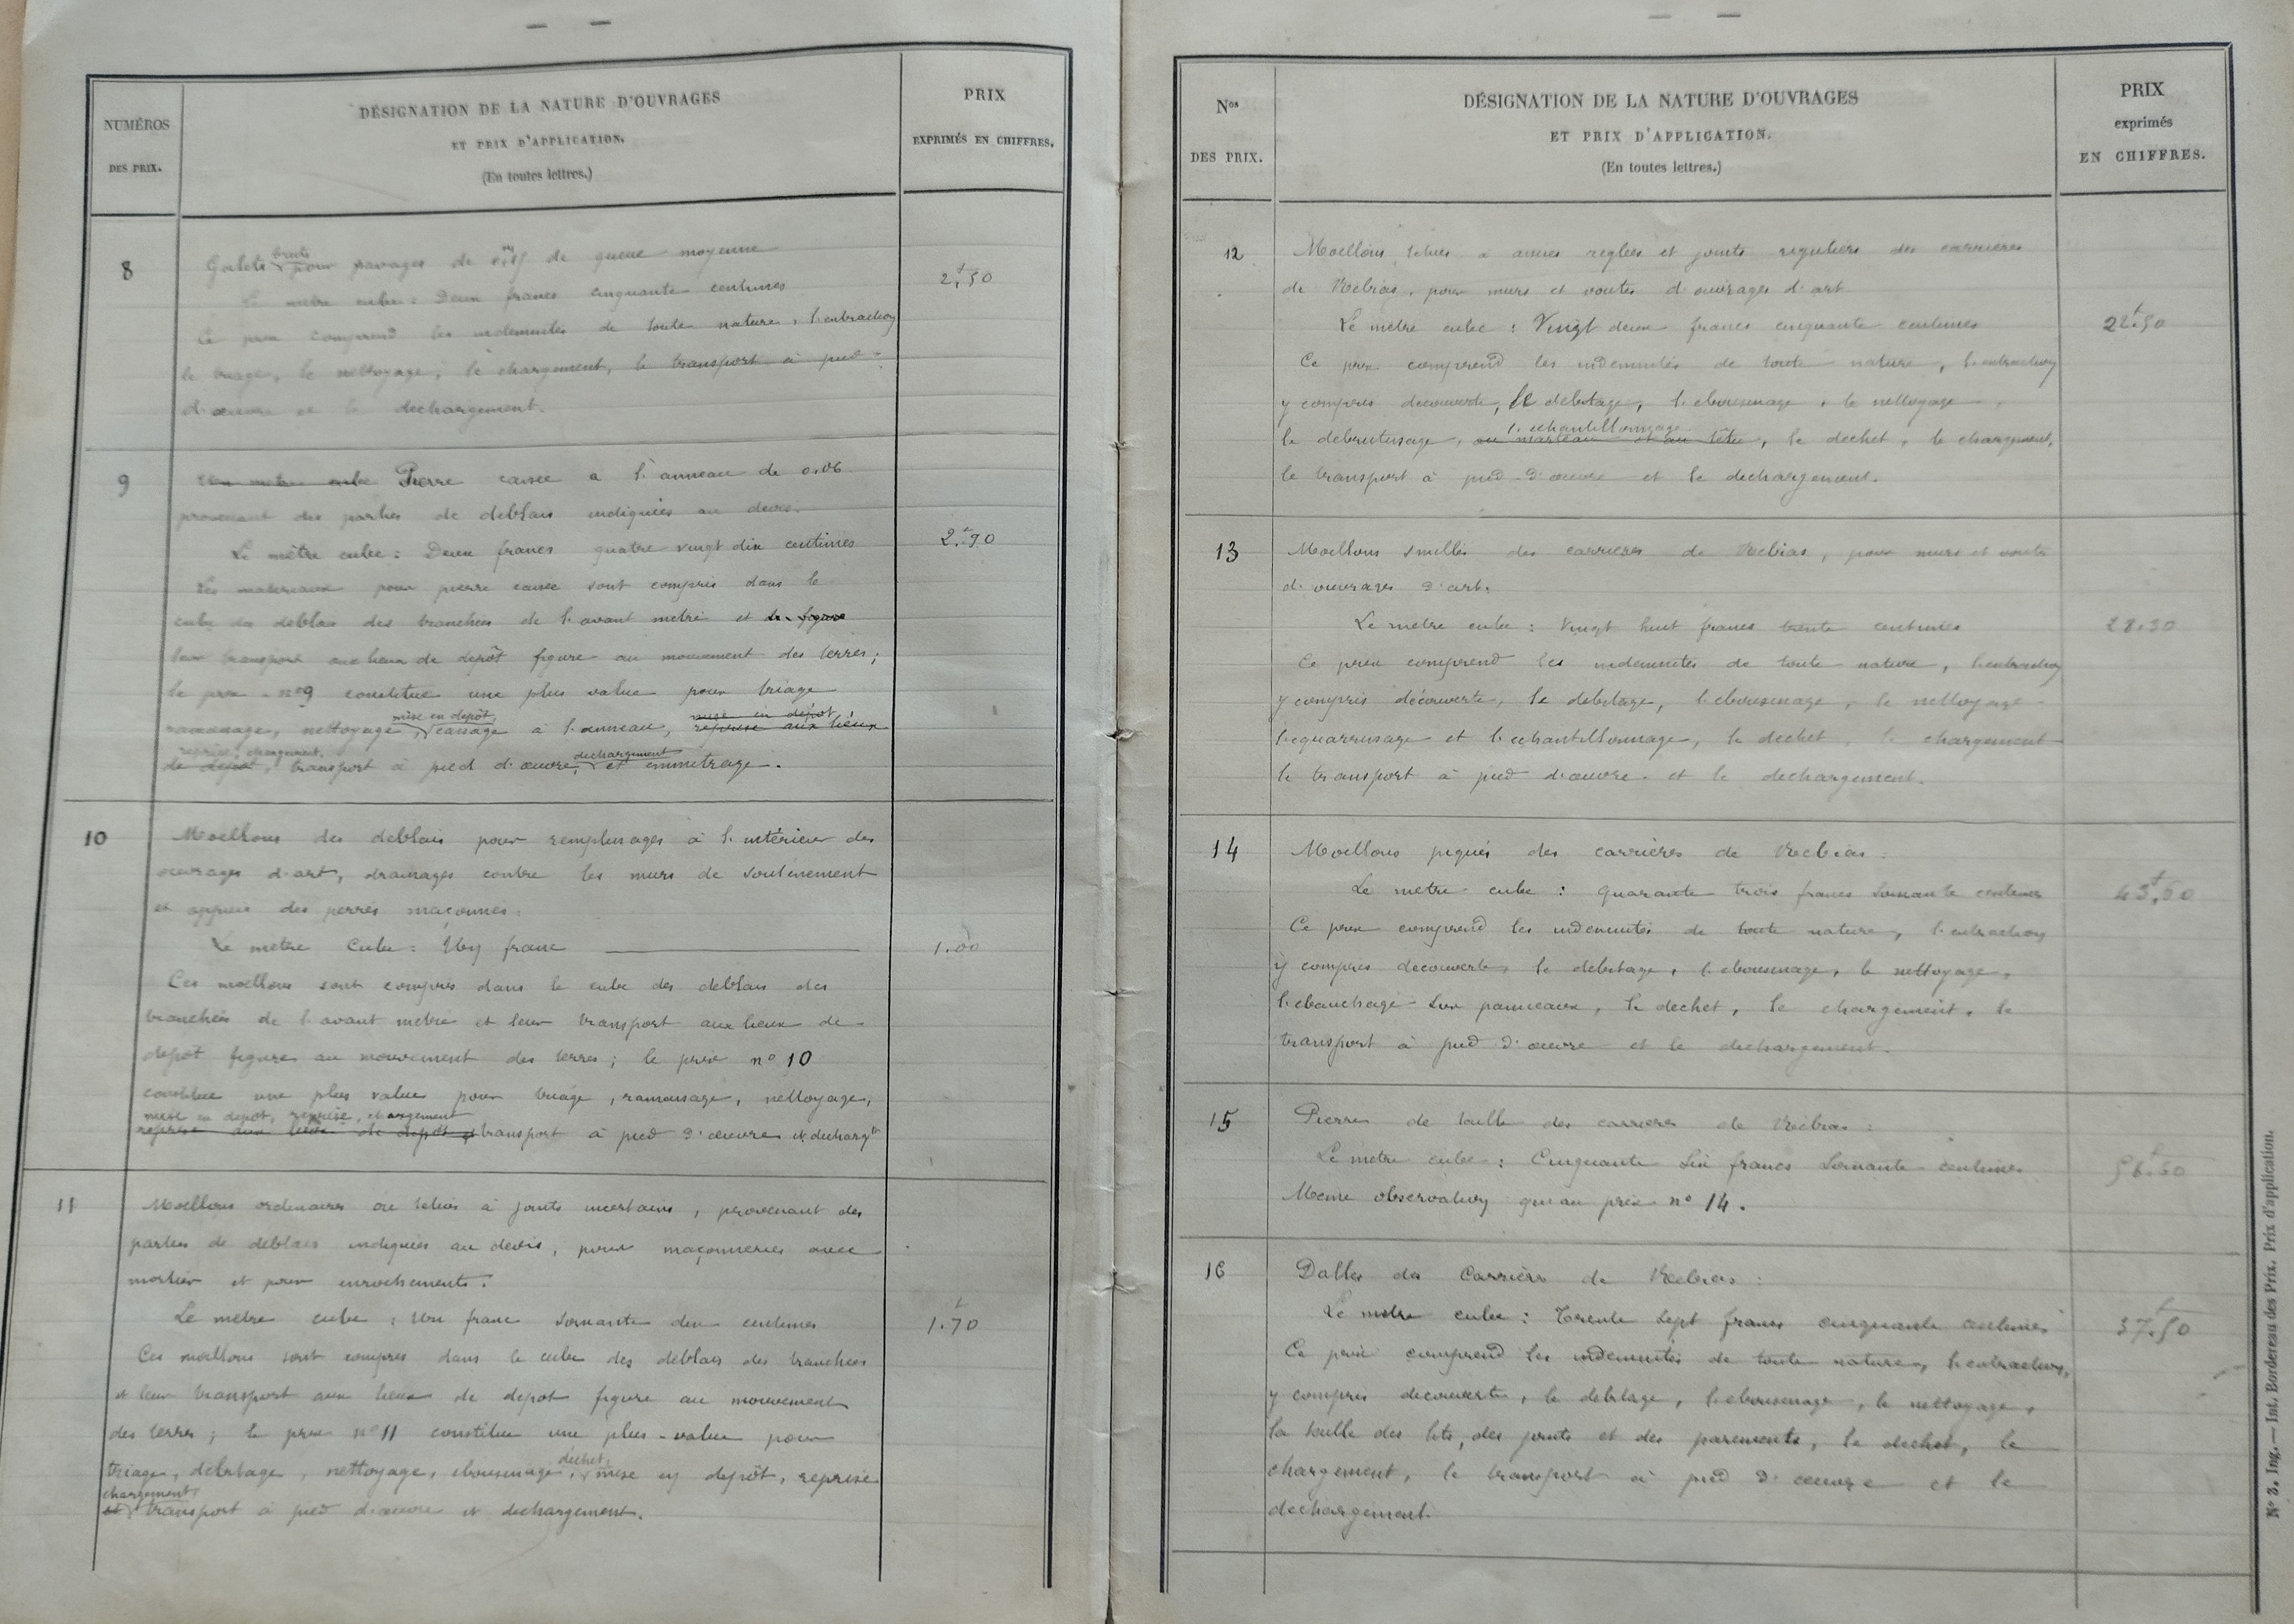 NUMÉROS
DES PRIX.
DÉSIGNATION DE LA NATURE D'OUVRAGES
ET PRIX D'APPLICATION.
(En toutes lettres.)
PRIX
EXPRIMÉS EN CHIFFRES.
8
Galets bruts pour pavages de de queue moyenne
Le mètre cube : Deux francs cinquante centimes
2f.50
Ce prix comprend les indemnités de toute nature, l'extraction
le triage, le nettoyage, le chargement, le transport à pied
d'œuvre et le dechargement.
9
Un mètre cube Pierre cassée à l'anneau de 0.06
provenant des parties de déblais indiquées au devis.
Le mètre cube : Deux francs quatre vingt dix centimes
2f.90
Les materiaux pour pierre cassée sont compris dans le
cube des déblais des tranchées de l'avant metré et figure
leur transport aux lieux de depôt figure au mouvement des terres ;
le prix n° 9 constitue une plus value pour triage
ramassage, nettoyage, mise en depôt, cassage à l'anneau, mise en dépôt, reprise aux lieux
reprise, chargement,
de depôt, transport à pied d'œuvre, dechargement et emmetrage.
10
Moellons des deblais pour remplissages à l'intérieur des
ouvrages d'art, drainages contre les murs de soutènement
et appuis des perrés maçonnés :
Le mètre Cube : Un franc
1.00
Ces moellons sont compris dans le cube des deblais des
tranchées de l'avant metré et leur transport aux lieux de
depôt figure au mouvement des terres ; le prix n° 10
constitue une plus value pour triage, ramassage, nettoyage,
mise en depot, reprise, chargement
reprise aux lieux de depôt et transport à pied d'œuvre et decharg.t
11
Moellons ordinaires ou têtués à joints incertains, provenant des
parties de déblais indiquées au devis, pour maçonneries avec
mortier et pour enrochements.
Le mètre cube : Un franc soixante dix centimes
1f.70
Ces moellons sont compris dans le cube des déblais des tranchées
et leur transport aux lieux de depot figure au mouvement
des terres ; le prix n° 11 constitue une plus-value pour
triage, débitage, nettoyage, ébousinage, déchet, mise en dépôt, reprise
chargement,
et transport à pied d'œuvre et dechargement.
Nos
DES PRIX.
DÉSIGNATION DE LA NATURE D'OUVRAGES
ET PRIX D'APPLICATION.
(En toutes lettres.)
PRIX
exprimés
EN CHIFFRES.
12
Moellons têtués à arêtes reglées et joints reguliers des carrières
de Trébias, pour murs et voutes d'ouvrages d'art
Le mètre cube : Vingt deux francs cinquante centimes
22f.50
Ce prix comprend les indemnités de toute nature, l'extraction
y compris decouverte, le debitage, l'ebousinage, le nettoyage,
le debrutissage, l'echantillonnage au marteau et au têtu, le dechet, le chargement,
le transport à pied d'œuvre et le dechargement.
13
Moellons smillés des carrières de Trébias, pour murs et voute
d'ouvrages d'art.
Le mètre cube : Vingt huit francs trente centimes
28.30
Ce prix comprend les indemnités de toute nature, l'extraction
y compris découverte, le debitage, l'ebousinage, le nettoyage
l'equarrissage et l'echantillonnage, le dechet, le chargement
le transport à pied d'œuvre et le dechargement.
14
Moellons piqués des carrières de Trébias :
Le mètre cube : quarante trois francs soixante centimes
43f.60
Ce prix comprend les indemnités de toute nature, l'extraction
y compris decouverte, le debitage, l'ebousinage, le nettoyage,
l'ebauchage sur panneaux, le dechet, le chargement, le
transport à pied d'œuvre et le dechargement.
15
Pierres de taille des carrières de Trébias :
Le mètre cube : Cinquante six francs soixante centimes
56f.60
Meme observation qu'au prix n° 14.
16
Dalles des Carrières de Trébias :
Le mètre cube : Trente sept francs cinquante centimes
37f.50
Ce prix comprend les indemnités de toute nature, l'extraction,
y compris decouverte, le debitage, l'ebousinage, le nettoyage,
la taille des lits, des joints et des parements, le dechet, le
chargement, le transport à pied d'œuvre et le
dechargement.
N° 3. Ing. — Int. Bordereau des Prix. Prix d'application.